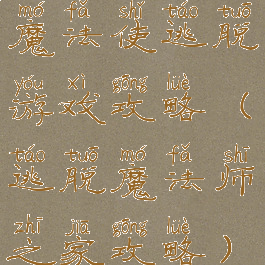 mó fǎ shǐ táo tuō
魔法使逃脱
yóu xì gōng lüè
游戏攻略（
táo tuō mó fǎ shī
逃脱魔法师
zhī jiā gōng lüè
之家攻略）